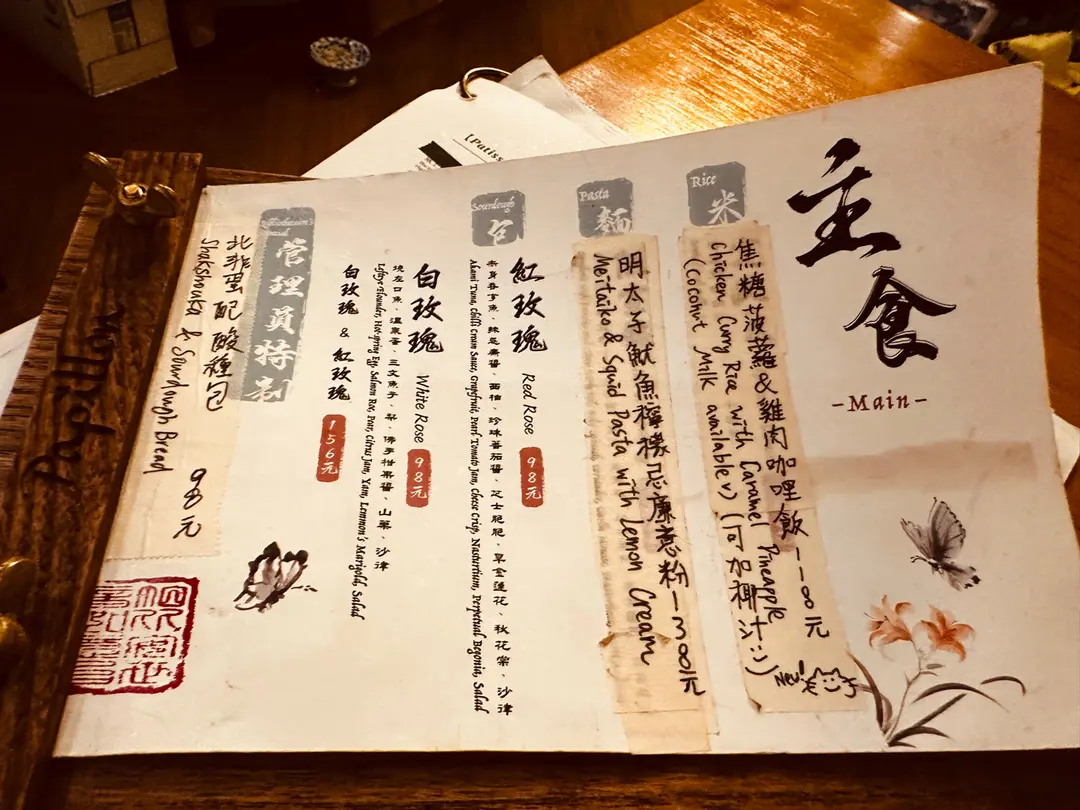 主食
-Main-
Rice
米
焦糖菠蘿&雞肉咖哩飯 118元
Chicken Curry Rice with Caramel Pineapple
(Coconut Milk available♥) (可加椰汁:))
New!
Pasta
麵
明太子魷魚檸檬忌廉意粉 138元
Mentaiko & Squid Pasta with Lemon Cream
Sourdough
包
紅玫瑰 Red Rose 98元
赤身吞拿魚、辣忌廉醬、西柚、珍珠蕃茄醬、芝士脆脆、旱金蓮花、秋花棠、沙律
Akami Tuna, Chilli Cream Sauce, Grapefruit, Pearl Tomato Jam, Cheese Crisp, Nasturtium, Perpetual Begonia, Salad
白玫瑰 White Rose 98元
燒左口魚、溫泉蛋、三文魚子、梨、佛手柑果醬、山藥、沙律
Lefteye Flounder, Hot-spring Egg, Salmon Roe, Pear, Citrus Jam, Yam, Lemmon's Marigold, Salad
白玫瑰 & 紅玫瑰 156元
管理員特別
北非蛋配酸種包
Shakshouka & Sourdough Bread 98元
Papillon
[Patiss